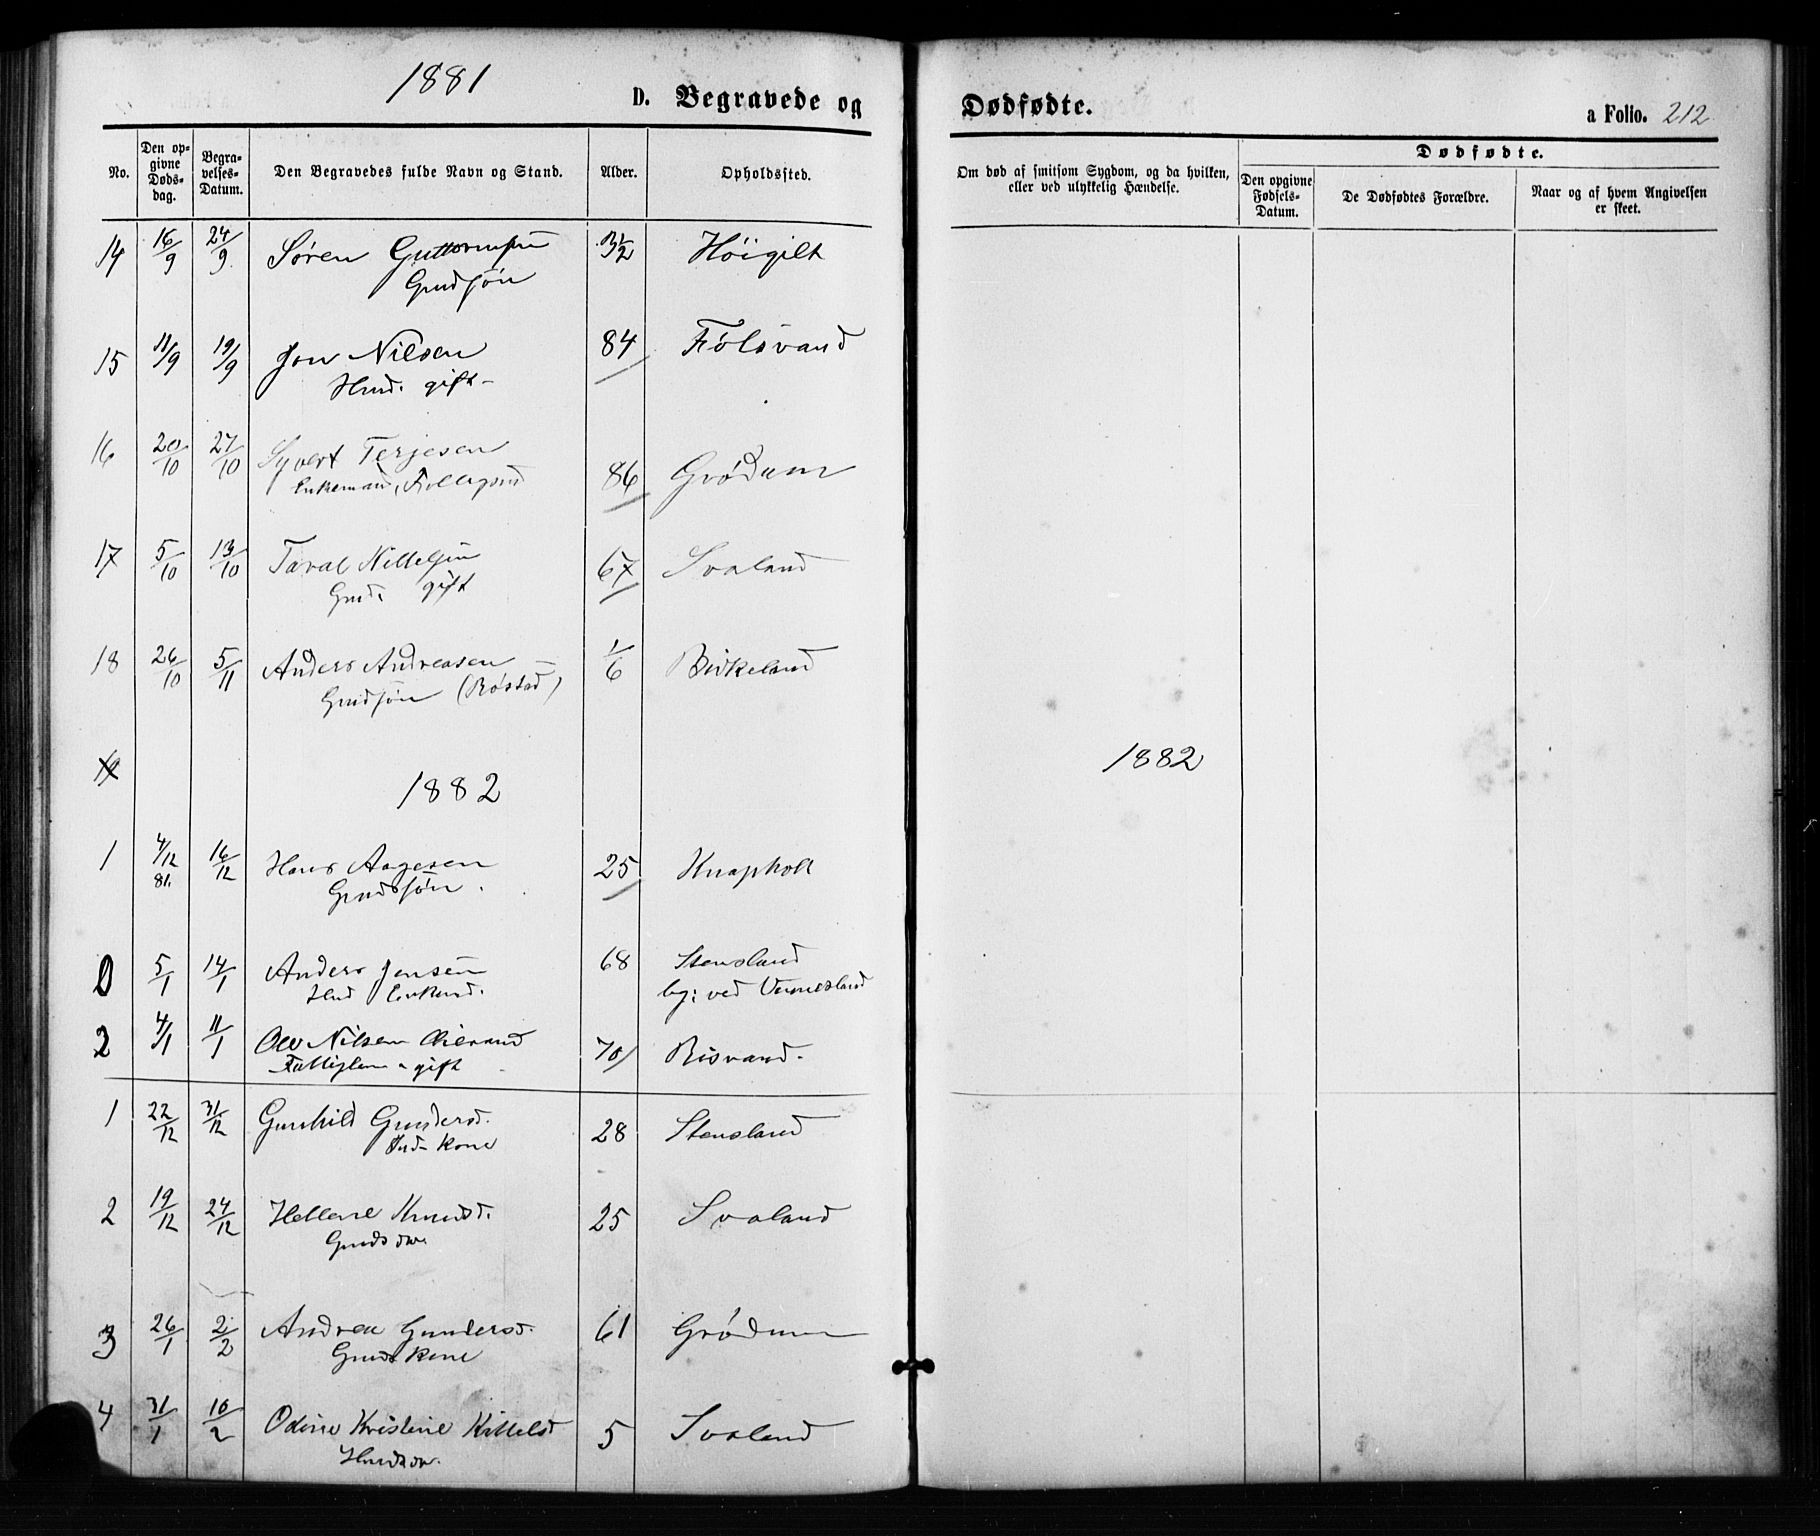 1881
D. Begravede og
Dødfødte.
a Folio. 212
No.
Den opgivne Dødsdag.
Begravelses-Datum.
Den Begravedes fulde Navn og Stand.
Alder.
Opholdssted.
Om død af smitsom Sygdom, og da hvilken, eller ved ulykkelig Hændelse.
Dødfødte.
Den opgivne Fødsels-Datum.
De Dødfødtes Forældre.
Naar og af hvem Angivelsen er skeet.
14 16/9 24/9 Søren Guttormsen 3½ Høigilt
Gmdsøn
15 11/9 19/9 Jon Nilsen 84 Fölsvand
Hmd. gift
16 20/10 27/10 Syvert Terjesen 86 Grødum
Enkemand,
17 5/10 13/10 Taral 67 Svaland
Gmd. gift
18 26/10 5/11 Anders Andreasen 1/6 Birkeland
Gmdsøn (Røstad)
1882
1882
1 4/12 81. 16/12 Hans Aagesen 25 Knapholt
Gmdssøn.
0 5/1 14/1 Anders Jensen 68 Stensland
Hmd Enkmd. bg: ved Vennesland
2 4/1 11/1 Ole Nilsen 70 Risvand.
gift
1 22/12 31/12 Gunhild Gundersd. 28 Stensland
Kone
2 19/12 24/12 Hellene Knudsd. 25 Svaland
Gmdsdtr.
3 26/1 2/2 Andrea Gundersd. 61 Grødum
Gmds Kone
4 31/1 10/2 Odine Kristine Kittelsd 5 Svaland
Hmdsdtr.